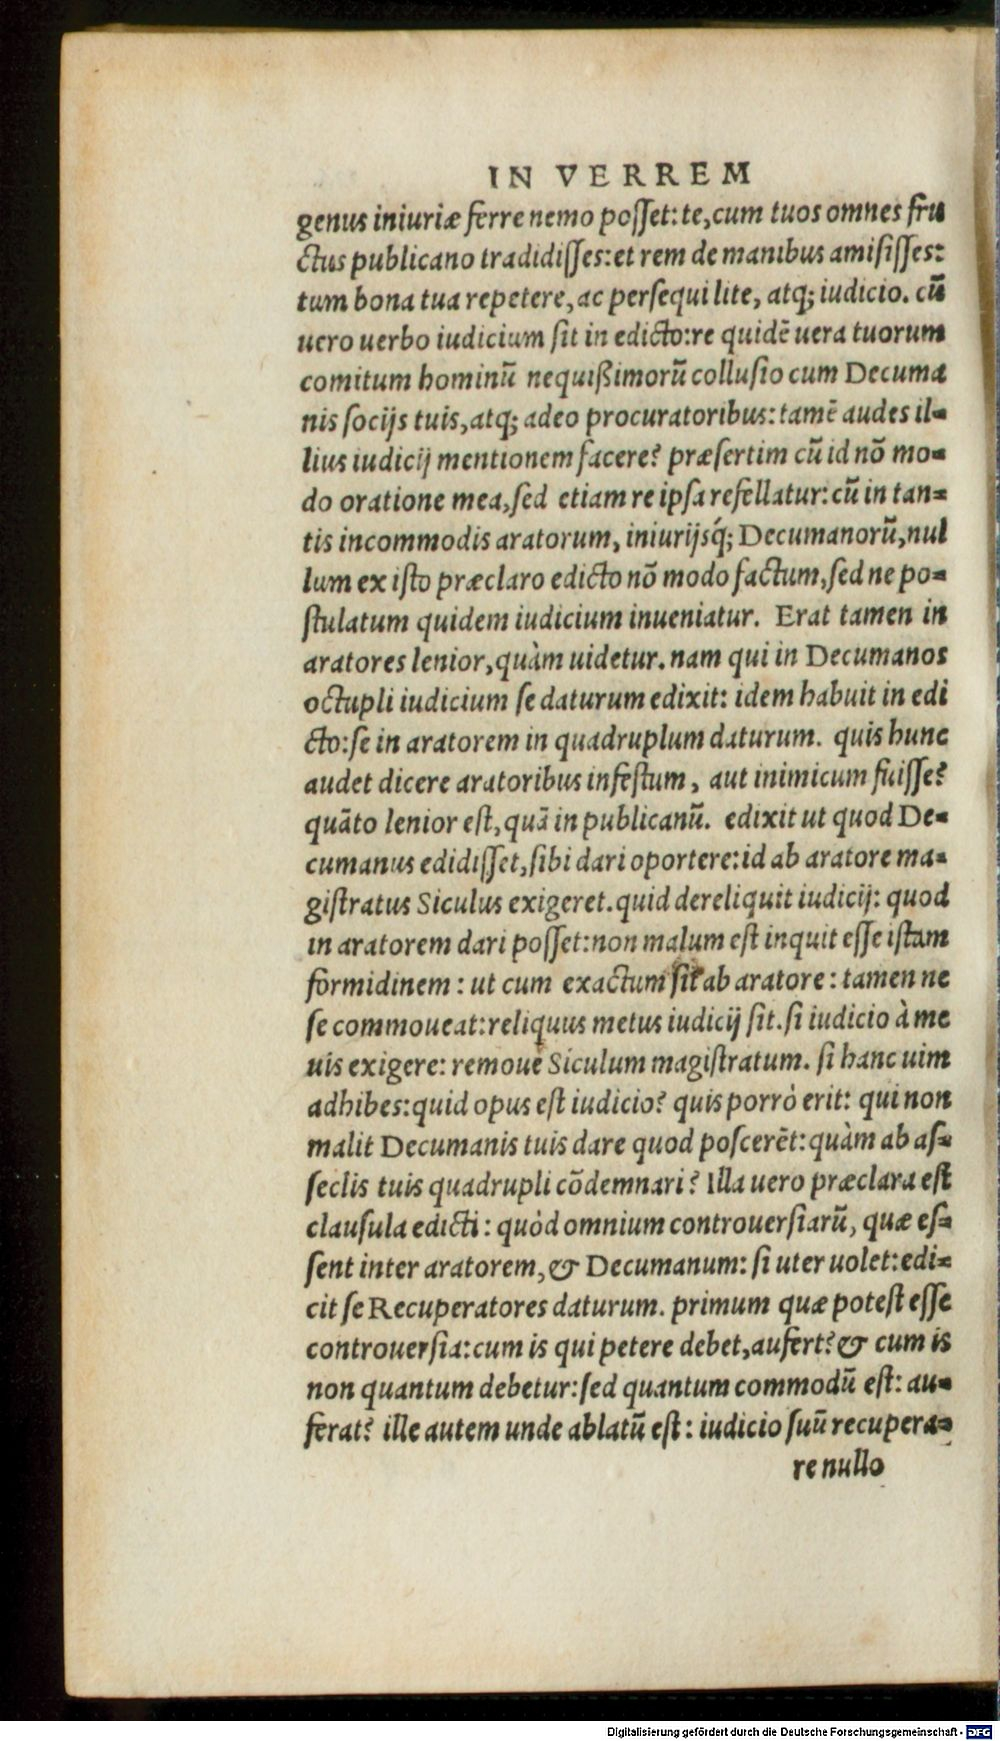 IN VERREM
genus iniuriæ ferre nemo posset: te, cum tuos omnes fru
ctus publicano tradidisses: et rem de manibus amisisses:
tum bona tua repetere, ac persequi lite, atq; iudicio. cū
uero uerbo iudicium sit in edicto: re quidē uera tuorum
comitum hominū nequißimorū collusio cum Decuma
nis socijs tuis, atq; adeo procuratoribus: tamē audes il-
lius iudicij mentionem facere? præsertim cū id nō mo-
do oratione mea, sed etiam re ipsa refellatur: cū in tan-
tis incommodis aratorum, iniurijsq́; Decumanorū, nul
lum ex isto præclaro edicto nō modo factum, sed ne po-
stulatum quidem iudicium inueniatur. Erat tamen in
aratores lenior, quàm uidetur. nam qui in Decumanos
octupli iudicium se daturum edixit: idem habuit in edi
cto: se in aratorem in quadruplum daturum. quis hunc
audet dicere aratoribus infestum, aut inimicum fuisse?
quāto lenior est, quā in publicanū. edixit ut quod De-
cumanus edidisset, sibi dari oportere: id ab aratore ma-
gistratus Siculus exigeret. quid dereliquit iudicij: quod
in aratorem dari posset: non malum est inquit esse istam
formidinem: ut cum exactum sit ab aratore: tamen ne
se commoueat: reliquus metus iudicij sit. si iudicio à me
uis exigere: remoue Siculum magistratum. si hanc uim
adhibes: quid opus est iudicio? quis porrò erit: qui non
malit Decumanis tuis dare quod poscerēt: quàm ab as-
seclis tuis quadrupli cōdemnari? Illa uero præclara est
clausula edicti: quòd omnium controuersiarū, quæ es-
sent inter aratorem, & Decumanum: si uter uolet: edi-
cit se Recuperatores daturum. primum quæ potest esse
controuersia: cum is qui petere debet, aufert? & cum is
non quantum debetur: sed quantum commodū est: au-
ferat? ille autem unde ablatū est: iudicio suū recupera-
re nullo
Digitalisierung gefördert durch die Deutsche Forschungsgemeinschaft - DFG